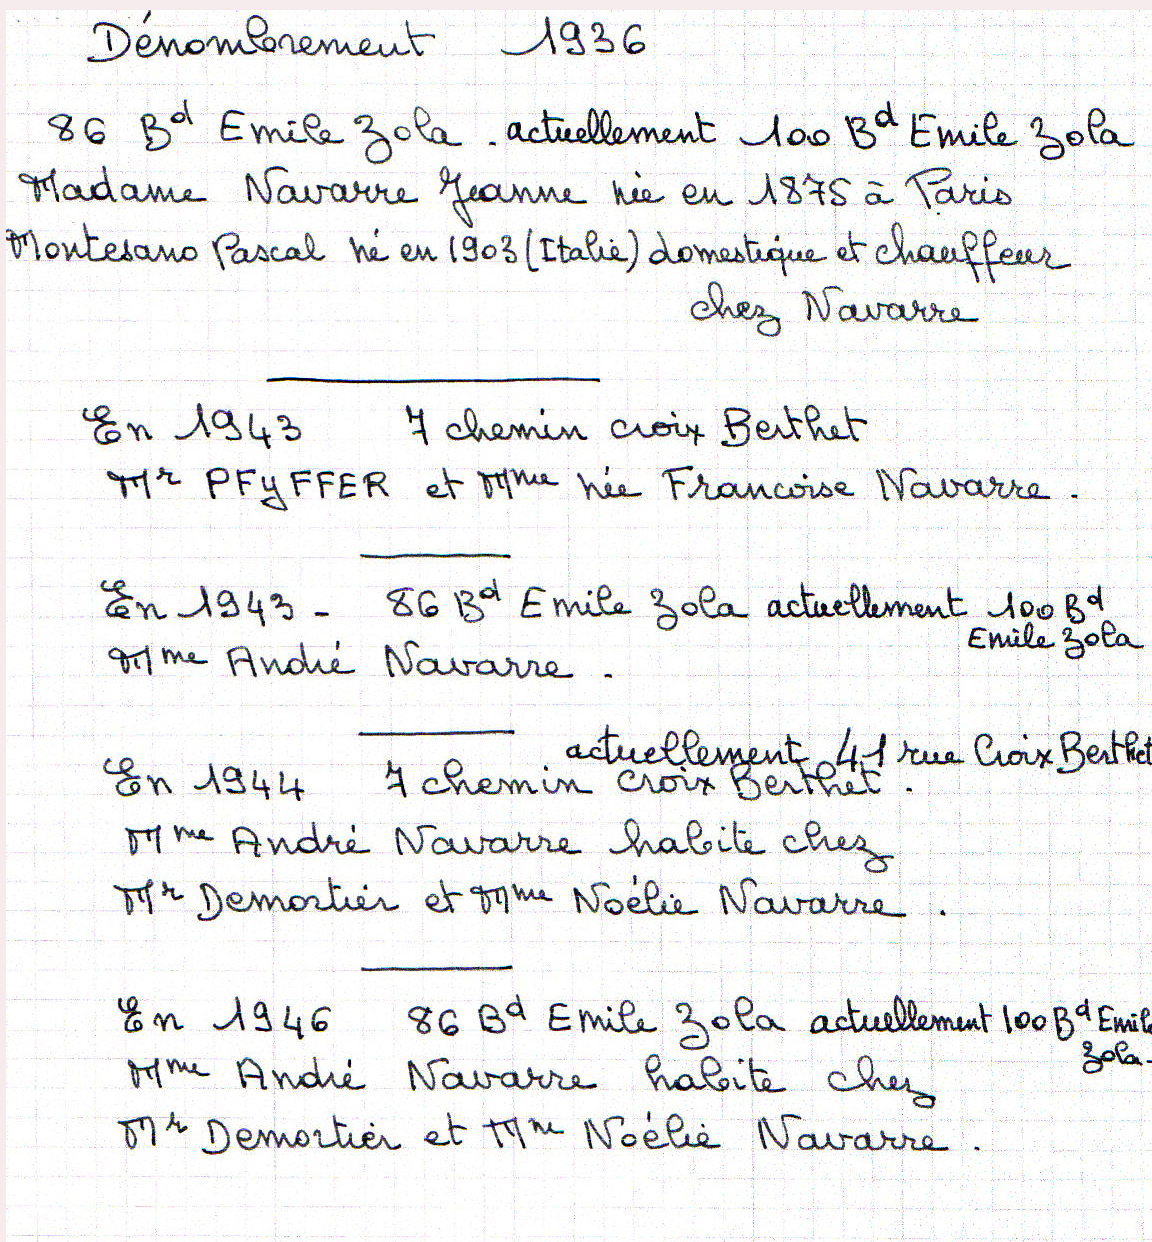 Dénombrement 1936
86 Bd Emile Zola . actuellement 100 Bd Emile Zola
Madame Navarre Jeanne née en 1875 à Paris
Montesano Pascal né en 1903 (Italie) domestique et chauffeur
chez Navarre
En 1943 7 chemin croix Berthet
Mr PFyFFER et Mme née Francoise Navarre .
En 1943 - 86 Bd Emile Zola actuellement 100 Bd
Emile Zola
Mme André Navarre .
actuellement 41 rue Croix Berthet
En 1944 7 chemin croix Berthet .
Mme André Navarre habite chez
Mr Demortier et Mme Noélie Navarre .
En 1946 86 Bd Emile Zola actuellement 100 Bd Emile
Zola.
Mme André Navarre habite chez
Mr Demortier et Mme Noélie Navarre .